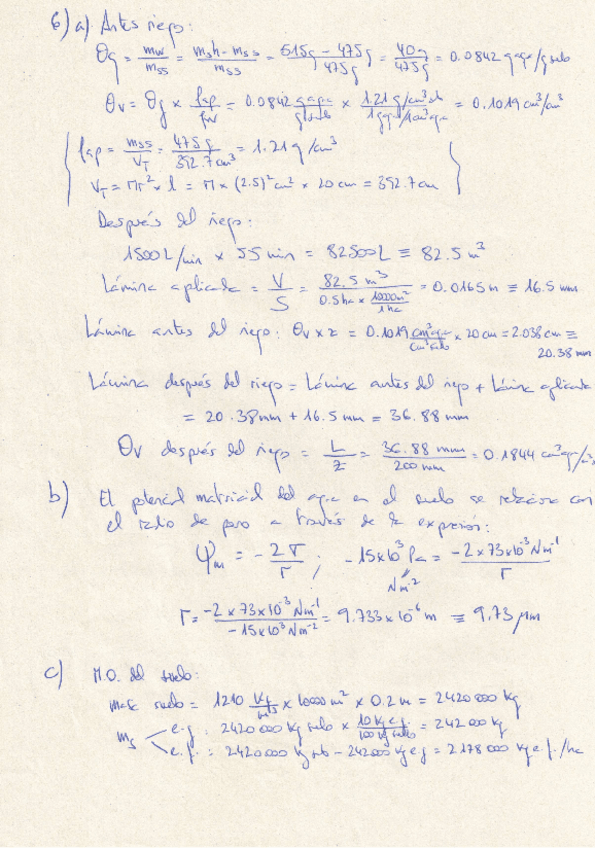 6) a) Antes riego:
θg = mw/mss = (msh - mss)/mss = (515g - 475g)/475g = 40g/475g = 0.0842 g agua/g suelo
θv = θg × ρap/ρw = 0.0842 × (1.21 g/cm³)/(1g agua/1cm³ agua) = 0.1019 cm³/cm³
ρap = mss/VT = 475g/392.7cm³ = 1.21 g/cm³
VT = πr² × l = π × (2.5)² cm² × 20 cm = 392.7 cm
Después del riego:
1500L/min × 55 min = 82500L ≡ 82.5 m³
Lámina aplicada = V/S = 82.5 m³/(0.5ha × 10000m²/1ha) = 0.0165m ≡ 16.5 mm
Lámina antes del riego: θv × z = 0.1019 cm³agua/cm³suelo × 20cm = 2.038 cm ≡
20.38 mm
Lámina después del riego = Lámina antes del riego + Lámina aplicada
= 20.38mm + 16.5 mm = 36.88 mm
θv después del riego = L/z = 36.88 mm/200 mm = 0.1844
b) El potencial matricial del agua en el suelo se relaciona con
el radio de poro a través de la expresión:
Ψm = - 2σ/r ; -15x10³ Pa = -2 x 73x10⁻³ Nm⁻¹/r
Nm⁻²
r = -2 x 73x10⁻³ Nm⁻¹/-15x10³ Nm⁻² = 9.733 x 10⁻⁶ m ≡ 9.73 μm
c) M.O. del suelo:
masa suelo = 1210 kg/m³ x 10000 m² x 0.2 m = 2420000 kg
ms e.g : 2420000 kg suelo x 10 kg e.g./100 kg suelo = 242000 kg
e.f. : 2420000 kg - 242000 kg e.g = 2178000 kg e.f./ha